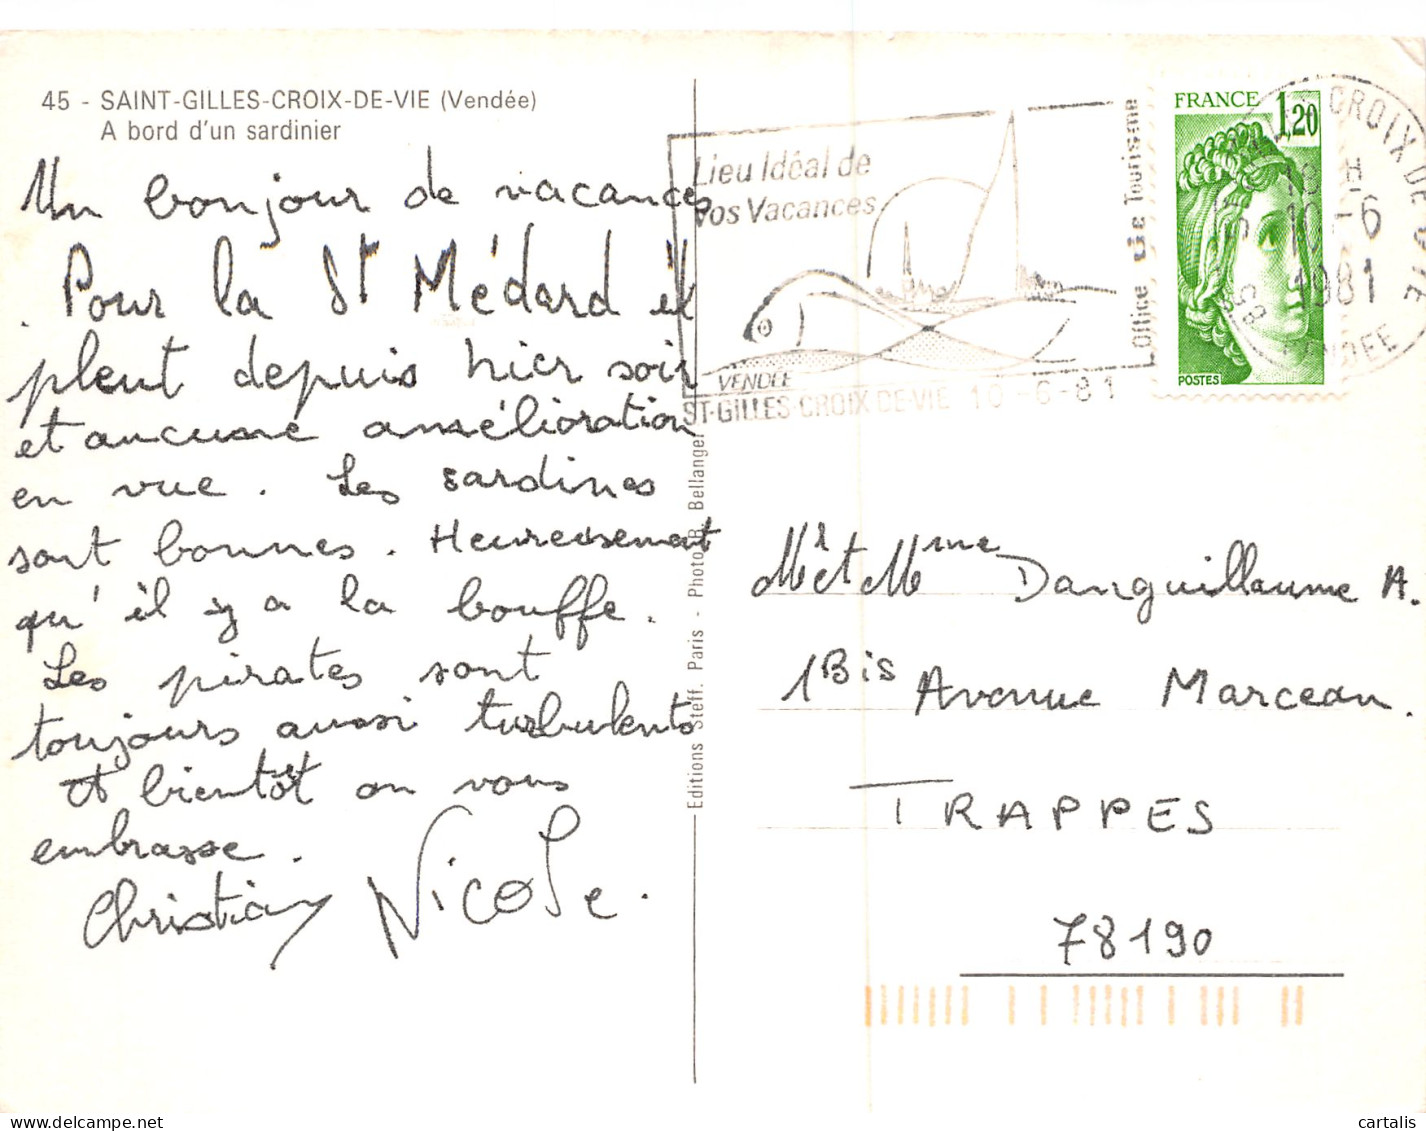 45 - SAINT-GILLES-CROIX-DE-VIE (Vendée)
A bord d'un sardinier
Un bonjour de vacances
Pour la St Médard il
pleut depuis hier soir
et aucune amélioration
en vue. Les sardines
sont bonnes. Heureusement
qu'il y a la bouffe.
Les pirates sont
toujours aussi turbulents
et bientôt on vous
embrasse.
Christian Nicole.
Editions Steff. Paris - Photo R. Bellanger
Lieu Idéal de
vos Vacances
Office de Tourisme
VENDÉE
ST-GILLES-CROIX-DE-VIE 10-6-81
FRANCE 1,20
POSTES
CROIX DE VIE
18 H
10-6
1981
85 VENDEE
Mr et Mme Danguillaume A.
1Bis Avenue Marceau.
TRAPPES
78190
cartalis - www.delcampe.net